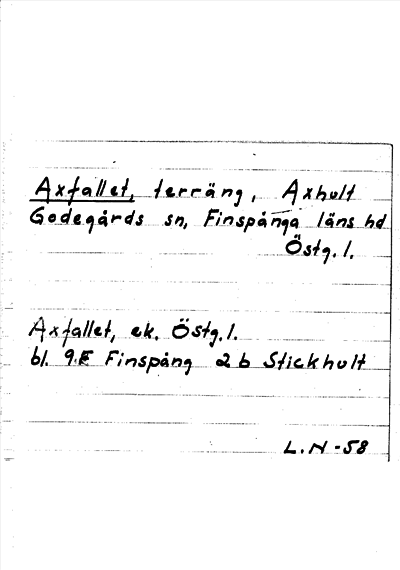 Axfallet, terräng, Axhult
Godegårds sn, Finspånga läns hd
Östg. l.
Axfallet, ek. Östg. l.
bl. 9E Finspång 2b Stickhult
L. N -58